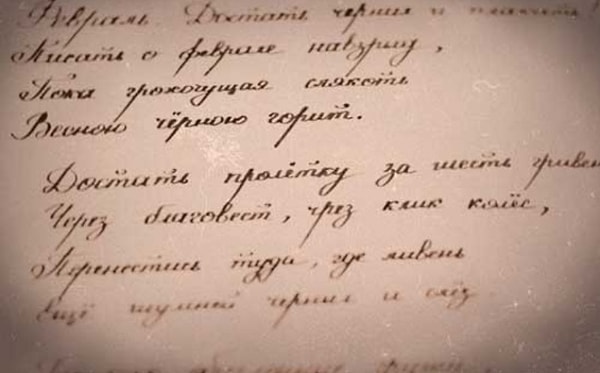 Февраль. Достать чернил и плакать!
Писать о феврале навзрыд,
Пока грохочущая слякоть
Весною чёрною горит.
Достать пролётку за шесть гривен
Через благовест, чрез клик колёс,
Перенестись туда, где ливень
Ещё шумней чернил и слёз.
обугленные груши,